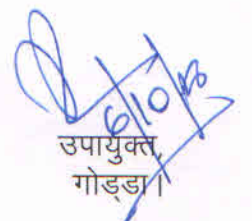 6/10/18
उपायुक्त,
गोड्डा।